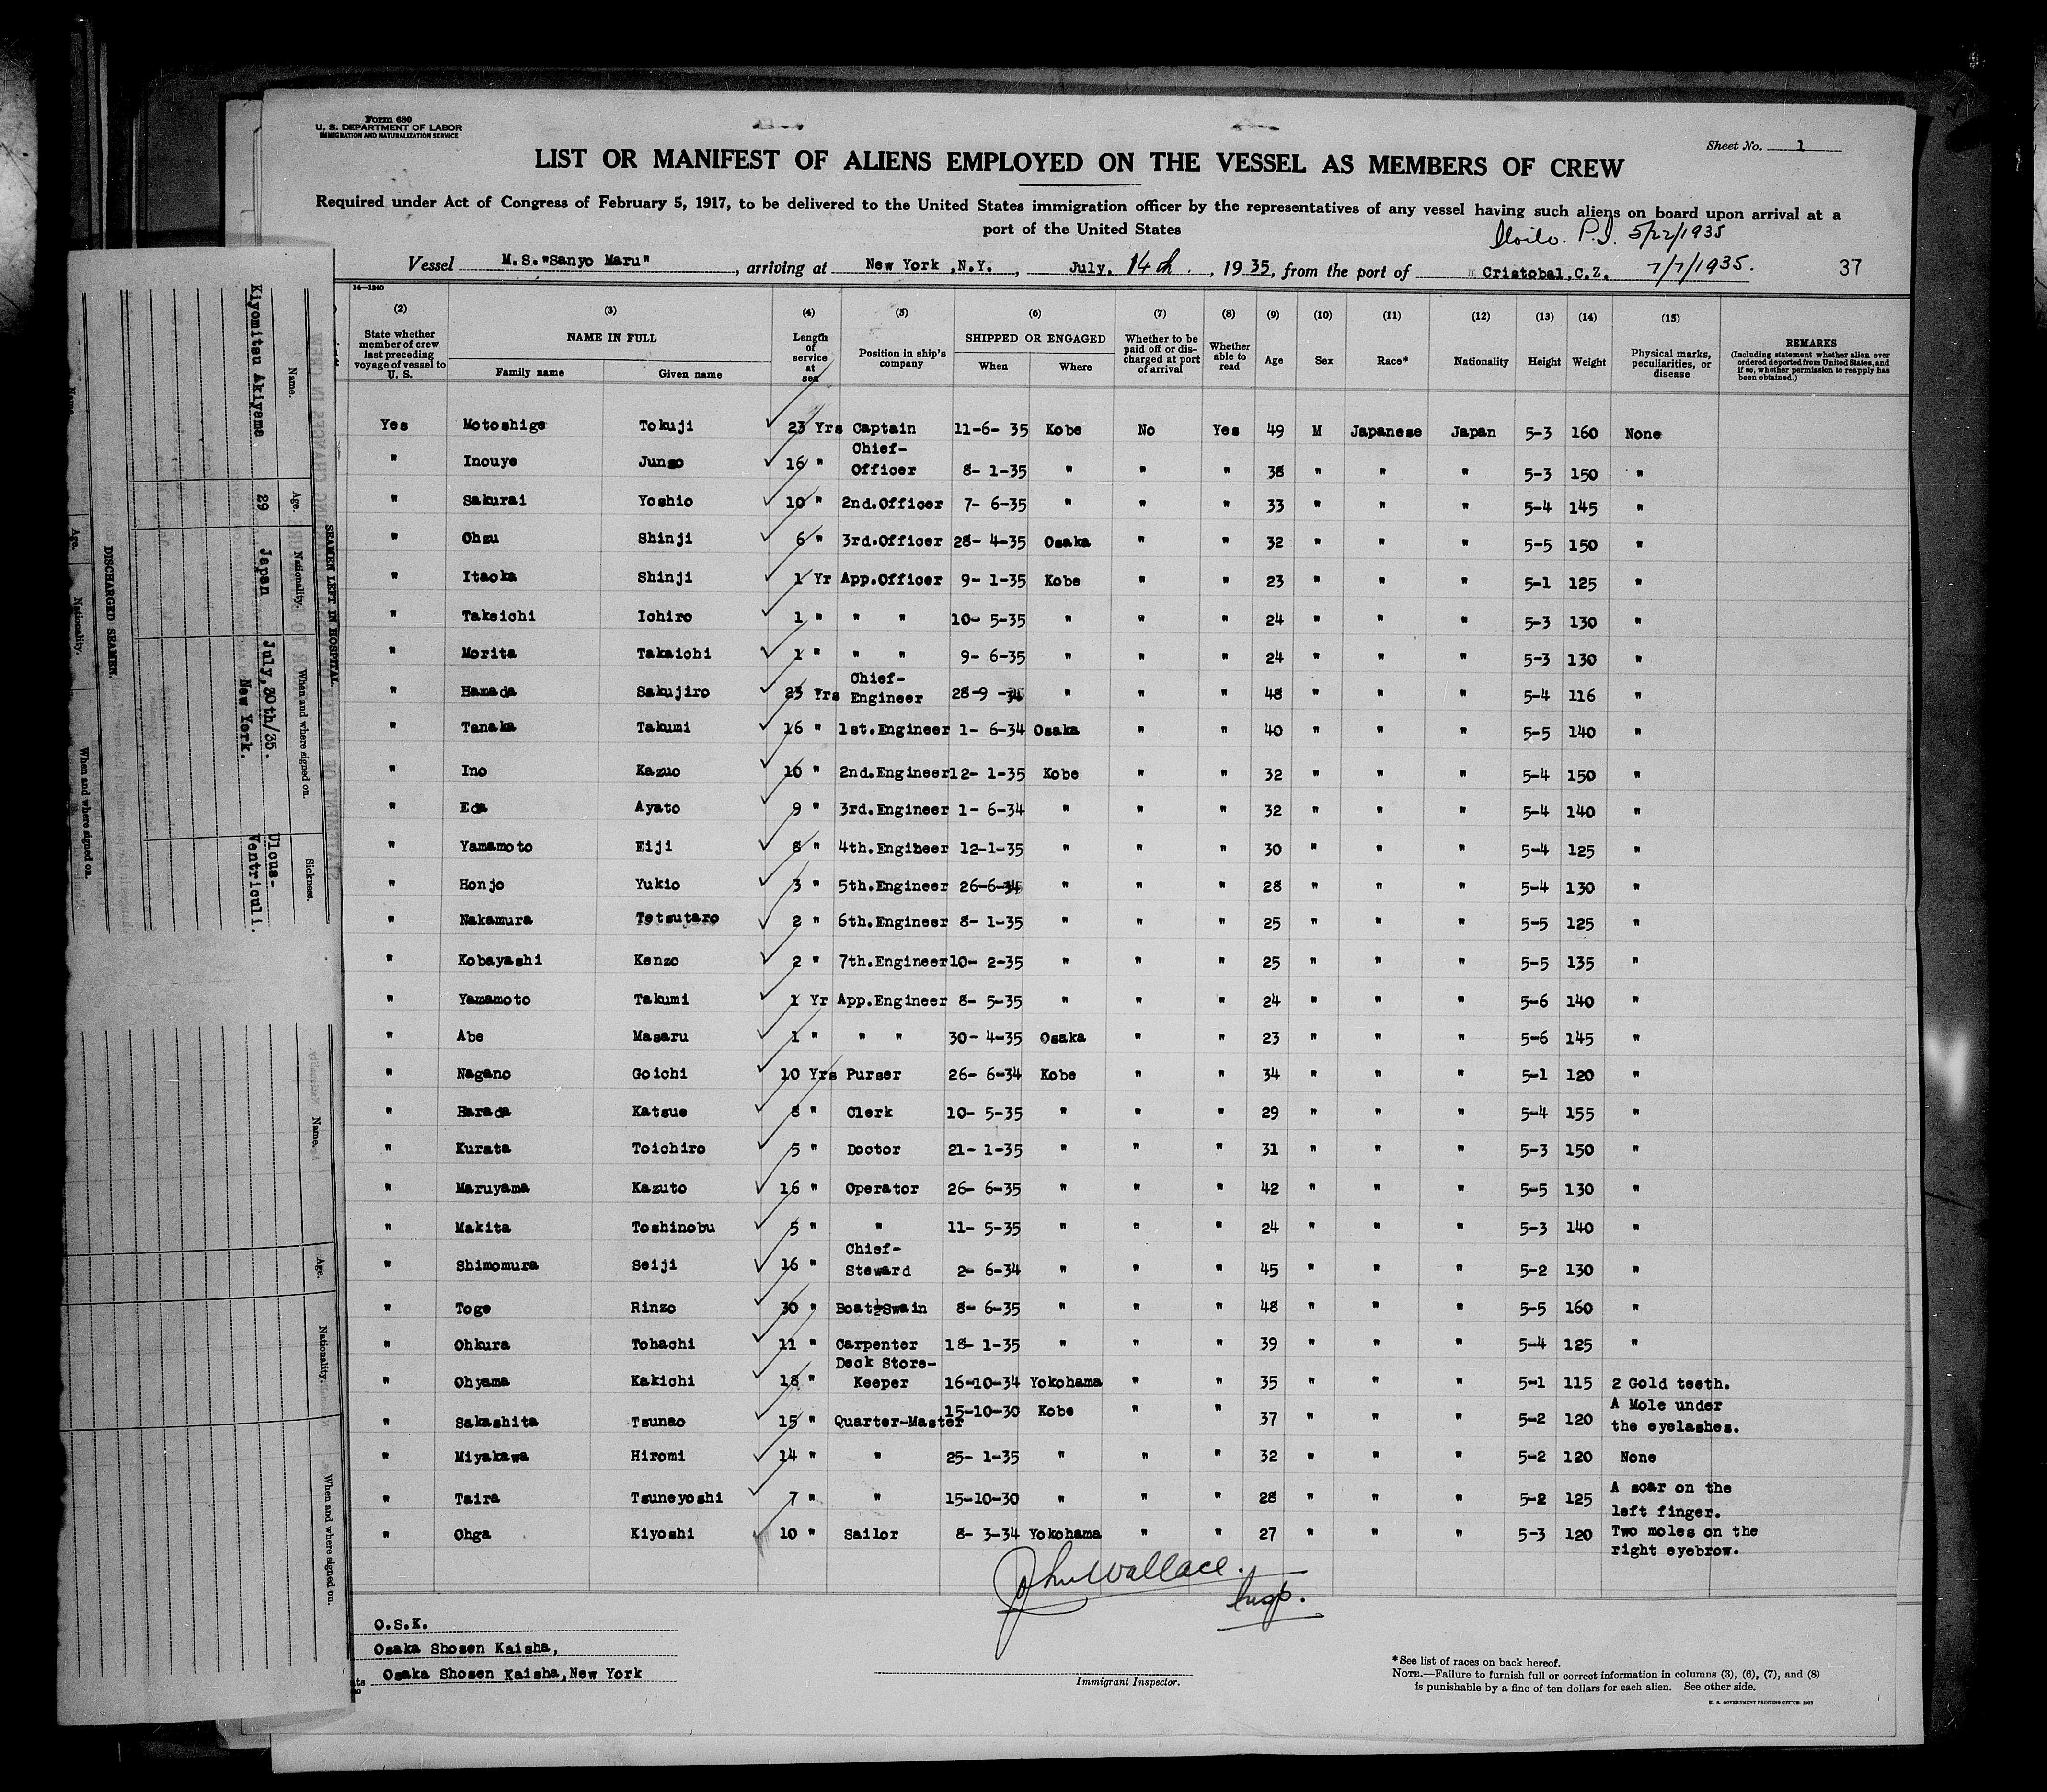 Form 680
U. S. DEPARTMENT OF LABOR
IMMIGRATION AND NATURALIZATION SERVICE
Sheet No. 1
LIST OR MANIFEST OF ALIENS EMPLOYED ON THE VESSEL AS MEMBERS OF CREW
Required under Act of Congress of February 5, 1917, to be delivered to the United States immigration officer by the representatives of any vessel having such aliens on board upon arrival at a
port of the United States
Iloilo. P.I. 5/22/1935
Vessel M.S."Sanyo Maru", arriving at New York, N.Y., July, 14th., 1935, from the port of Cristobal, C.Z. 7/7/1935. 37
14—1240
(2) (3) (4) (5) (6) (7) (8) (9) (10) (11) (12) (13) (14) (15)
State whether member of crew last preceding voyage of vessel to U. S. NAME IN FULL Family name Given name Length of service at sea Position in ship's company SHIPPED OR ENGAGED When Where Whether to be paid off or discharged at port of arrival Whether able to read Age Sex Race* Nationality Height Weight Physical marks, peculiarities, or disease REMARKS (Including statement whether alien ever ordered deported from United States, and if so, whether permission to reapply has been obtained.)
Yes Motoshige Tokuji 23 Yrs Captain 11-6- 35 Kobe No Yes 49 M Japanese Japan 5-3 160 None
" Inouye Jungo 16 " Chief-Officer 8- 1-35 " " " 38 " " " 5-3 150 "
" Sakurai Yoshio 10 " 2nd.Officer 7- 6-35 " " " 33 " " " 5-4 145 "
" Ohzu Shinji 6 " 3rd.Officer 28- 4-35 Osaka " " 32 " " " 5-5 150 "
" Itaoka Shinji 1 Yr App.Officer 9- 1-35 Kobe " " 23 " " " 5-1 125 "
" Takeichi Ichiro 1 " " " 10- 5-35 " " " 24 " " " 5-3 130 "
" Morita Takaichi 1 " " " 9- 6-35 " " " 24 " " " 5-3 130 "
" Hamada Sakujiro 23 Yrs Chief-Engineer 28-9 -34 " " " 48 " " " 5-4 116 "
" Tanaka Takumi 16 " 1st.Engineer 1- 6-34 Osaka " " 40 " " " 5-5 140 "
" Ino Kazuo 10 " 2nd.Engineer 12- 1-35 Kobe " " 32 " " " 5-4 150 "
" Eda Ayato 9 " 3rd.Engineer 1- 6-34 " " " 32 " " " 5-4 140 "
" Yamamoto Eiji 8 " 4th.Engineer 12-1-35 " " " 30 " " " 5-4 125 "
" Honjo Yukio 3 " 5th.Engineer 26-6-34 " " " 28 " " " 5-4 130 "
" Nakamura Tetsutaro 2 " 6th.Engineer 8- 1-35 " " " 25 " " " 5-5 125 "
" Kobayashi Kenzo 2 " 7th.Engineer 10- 2-35 " " " 25 " " " 5-5 135 "
" Yamamoto Takumi 1 Yr App.Engineer 8- 5-35 " " " 24 " " " 5-6 140 "
" Abe Masaru 1 " " " 30- 4-35 Osaka " " 23 " " " 5-6 145 "
" Nagano Goichi 10 Yrs Purser 26- 6-34 Kobe " " 34 " " " 5-1 120 "
" Harada Katsue 8 " Clerk 10- 5-35 " " " 29 " " " 5-4 155 "
" Kurata Toichiro 5 " Doctor 21- 1-35 " " " 31 " " " 5-3 150 "
" Maruyama Kazuto 16 " Operator 26- 6-35 " " " 42 " " " 5-5 130 "
" Makita Toshinobu 5 " " 11- 5-35 " " " 24 " " " 5-3 140 "
" Shimomura Seiji 16 " Chief-Steward 2- 6-34 " " " 45 " " " 5-2 130 "
" Toge Rinzo 30 " Boat-Swain 8- 6-35 " " " 48 " " " 5-5 160 "
" Ohkura Tohachi 11 " Carpenter 18- 1-35 " " " 39 " " " 5-4 125 "
" Ohyama Kakichi 18 " Deck Store-Keeper 16-10-34 Yokohama " " 35 " " " 5-1 115 2 Gold teeth.
" Sakashita Tsunao 15 " Quarter-Master 15-10-30 Kobe " " 37 " " " 5-2 120 A Mole under the eyelashes.
" Miyakawa Hiromi 14 " " 25- 1-35 " " " 32 " " " 5-2 120 None
" Taira Tsuneyoshi 7 " " 15-10-30 " " " 28 " " " 5-2 125 A scar on the left finger.
" Ohga Kiyoshi 10 " Sailor 8- 3-34 Yokohama " " 27 " " " 5-3 120 Two moles on the right eyebrow.
John Wallace.
Insp.
O.S.K.
Osaka Shosen Kaisha,
Osaka Shosen Kaisha, New York
Immigrant Inspector.
*See list of races on back hereof.
NOTE.—Failure to furnish full or correct information in columns (3), (6), (7), and (8)
is punishable by a fine of ten dollars for each alien. See other side.
U. S. GOVERNMENT PRINTING OFFICE
SEAMEN LEFT IN HOSPITAL
Name. Age. Nationality. When and where signed on. Sickness.
Kiyomitsu Akiyama 29 Japan July, 30th/35. New York. Ulcus-Ventriculi.
DISCHARGED SEAMEN.
Name. Age. Nationality. When and where signed on.
Name. Age. Nationality. When and where signed on.